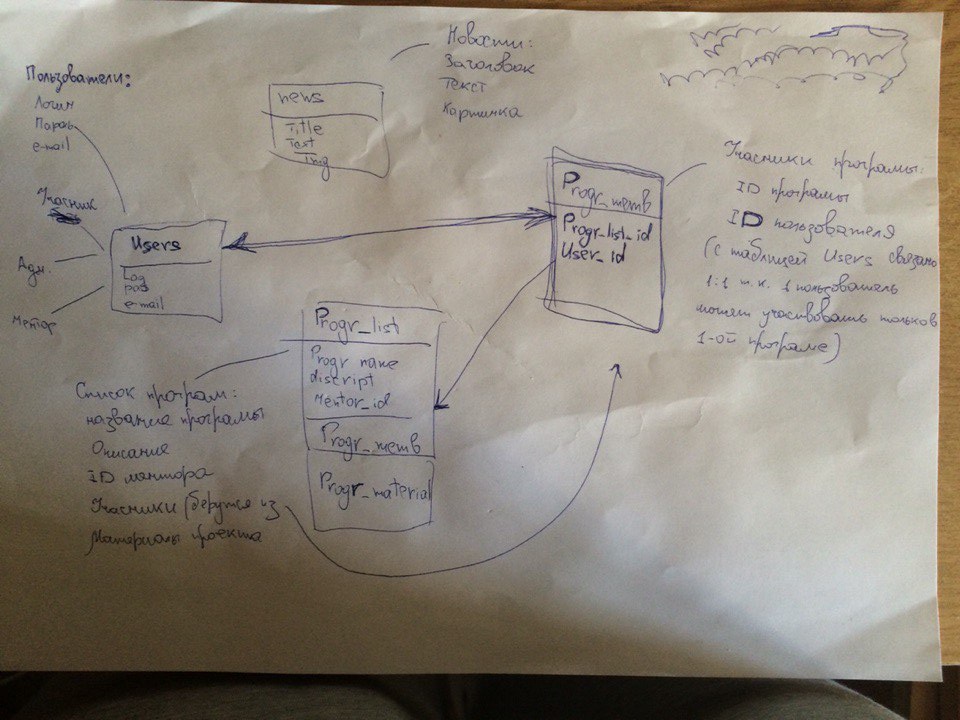 Новости:
Заголовок
Текст
Картинка
Пользователи:
Логин
Пароль
e-mail
news
Title
Text
Img
Учасник
Адм.
Ментор
Users
Log
pas
e-mail
Progr_memb
Progr_list_id
User_id
Учасники програмы:
ID програмы
ID пользователя
(с таблицей Users связано
1:1 т.к. 1 пользователь
может участвовать только в
1-ой програме)
Progr_list
Progr name
discript
Mentor_id
Progr_memb
Progr_material
Список програм:
название програмы
Описание
ID мантора
Учасники (берутся из
Материалы проекта